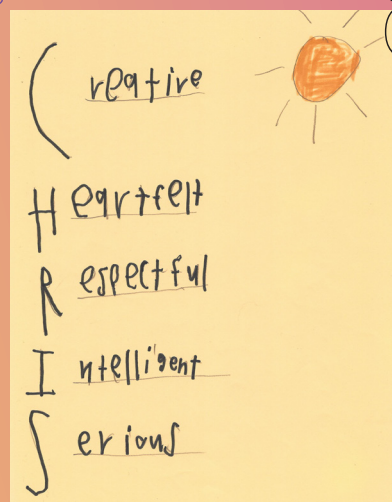 Creative
Heartfelt
Respectful
Intelligent
Serious